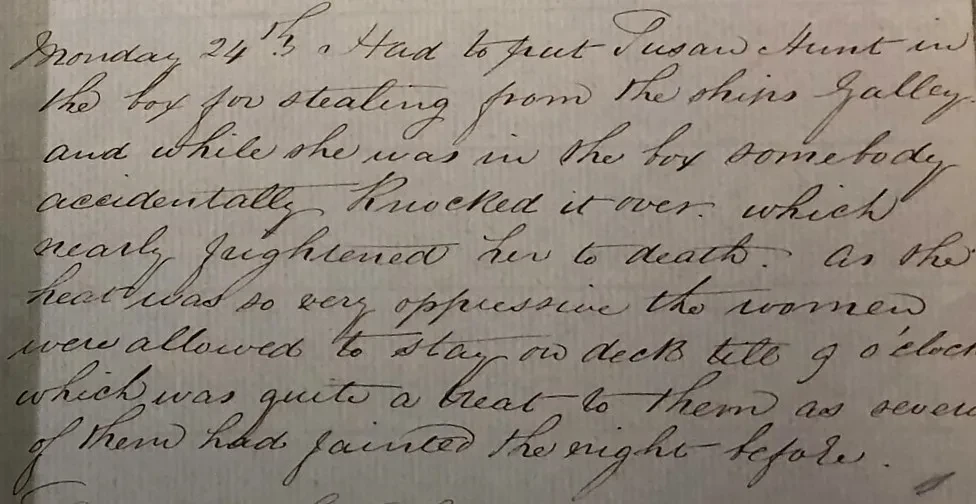 Monday 24th. Had to put Susan Hunt in
the box for stealing from the ships Galley.
and while she was in the box somebody
accidentally Knocked it over. which
nearly frightened her to death. As the
heat was so very oppressive the women
were allowed to stay on deck till 9 o'clock
which was quite a treat to them as seven
of them had fainted the night before.